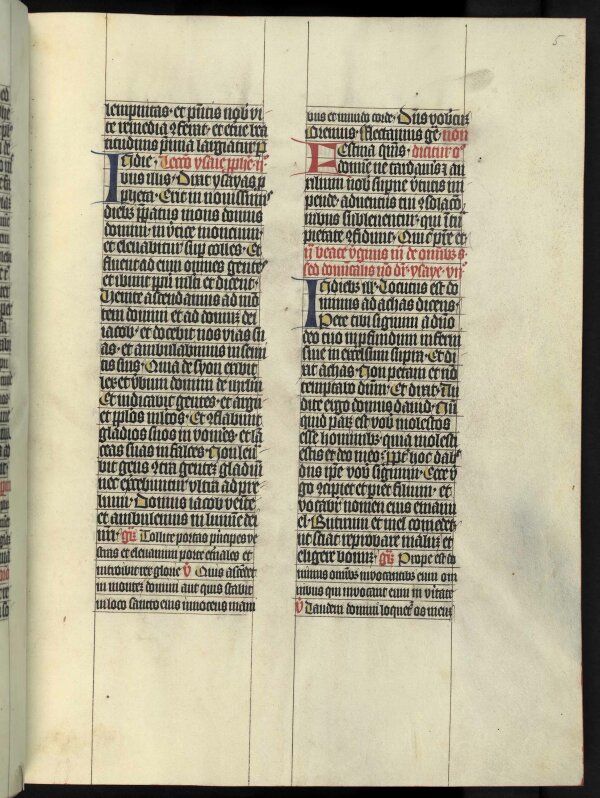 5
rēmpnitas et p̄ntis nob̄ vi
te remedia ꝯferat et et̄ne bea
titudinis p̄mia largiatur p
In die Lecco ysaye p̄phe ii
bus illis Dixit ysayas p
pheta Erit in nouissimis
dieb p̄patus mons domus
domini in v̄tice moncium
et eleuabitur sup colles Et
fluent ad eum omnes gentes
et ibunt ppli m̄lti et dicent
Venite ascendamus ad mō
tem domini et ad domum dei
iacob et docebit nos vias su
as et ambulabimus in semi
tis suis Quia de syon exibit
lex et v̄bum domini de ier̄lm
Et iudicabit gentes et arguet
et pplos m̄ltos Et ꝯflabunt
gladios suos in vomes et lā
ceas suas in falces Non leua
bit gens ꝯtra gentem gladium
nec exercebuntur vltra ad pre
lium Domus iacob venite
et ambulemus in lumine dei
nr̄i gr̄ Tollite portas principes ve
stras et eleuamini porte et̄nales et
introibit rex glorie V̄ Quis ascendet
in montem domini aut quis stabit
in loco sancto eius innocens mani
bus et mundo corde Dn̄s vobcum
Oremus flectamus ge non
Festina qs̄ dicitur o
domine ne tardaueris et au
xilium nob̄ supne v̄tutis im
pende aduentus tui ꝯsolaco
nibus subleuentur qui in tu
pietate ꝯfidunt Qui cū p̄re et
in ysaye vii
In dieb ill Locutus est do
minus ad achas dicens
Pete tibi signum a dn̄o
deo tuo in pfundum inferni
siue in excelsum supra Et di
xit achas Non petam et nō
temptabo dn̄m Et dixit Au
dite ergo domus dauid Nū
quid parū est vob̄ molestos
esse hominibus quia molesti
estis et deo meo ppt̄ hoc dabit
dn̄s ipe vob̄ signum Ecce v̄
go ꝯcipiet et piet filium et
vocabr̄ nomen eius emanu
el Butirum et mel comedet
ut sciat reprobare malum et
eligere bonum gr̄ Prope est do
minus omībus inuocantibus eum om
nibus qui inuocant eum in v̄itate
V̄ Laudem domini loquet̄ os meum